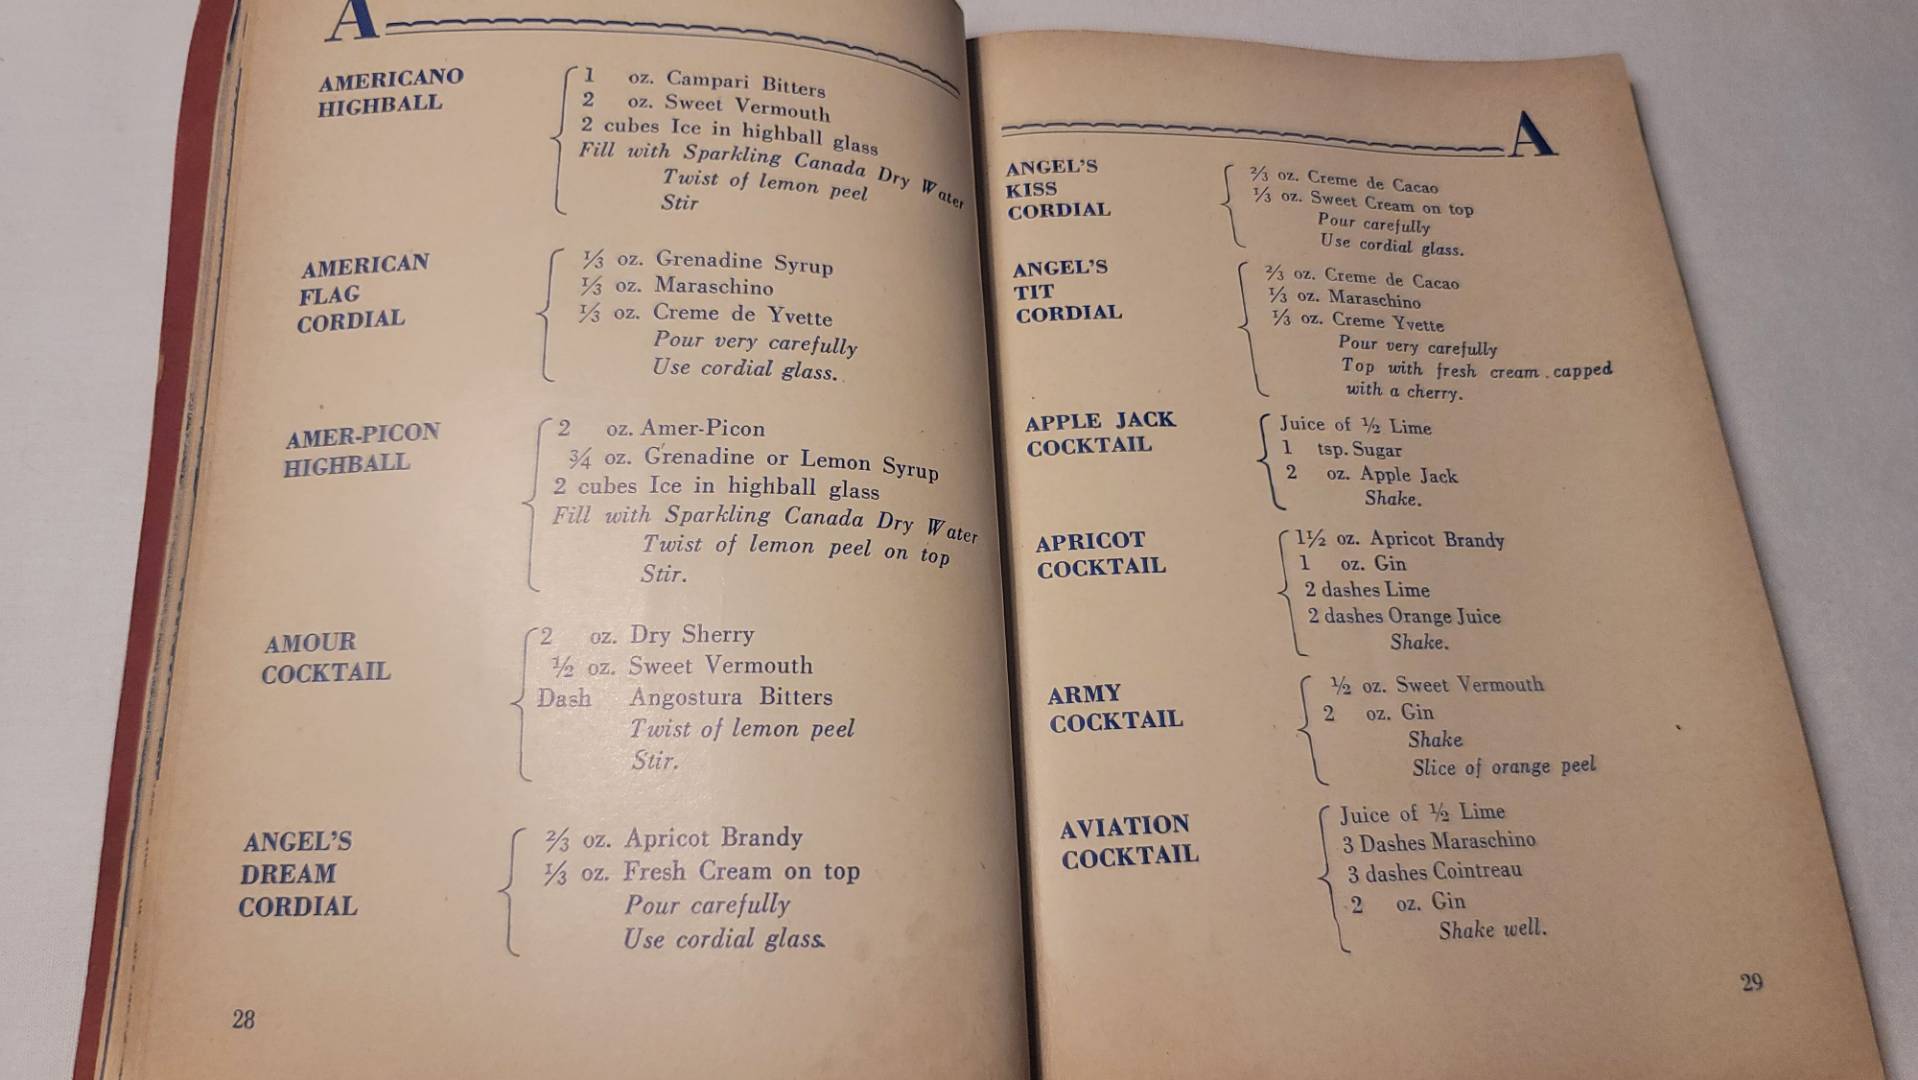 A
AMERICANO
HIGHBALL
1 oz. Campari Bitters
2 oz. Sweet Vermouth
2 cubes Ice in highball glass
Fill with Sparkling Canada Dry Water
Twist of lemon peel
Stir
AMERICAN
FLAG
CORDIAL
⅓ oz. Grenadine Syrup
⅓ oz. Maraschino
⅓ oz. Creme de Yvette
Pour very carefully
Use cordial glass.
AMER-PICON
HIGHBALL
2 oz. Amer-Picon
¾ oz. Grenadine or Lemon Syrup
2 cubes Ice in highball glass
Fill with Sparkling Canada Dry Water
Twist of lemon peel on top
Stir.
AMOUR
COCKTAIL
2 oz. Dry Sherry
½ oz. Sweet Vermouth
Dash Angostura Bitters
Twist of lemon peel
Stir.
ANGEL'S
DREAM
CORDIAL
⅔ oz. Apricot Brandy
⅓ oz. Fresh Cream on top
Pour carefully
Use cordial glass.
28
A
ANGEL'S
KISS
CORDIAL
⅔ oz. Creme de Cacao
⅓ oz. Sweet Cream on top
Pour carefully
Use cordial glass.
ANGEL'S
TIT
CORDIAL
⅔ oz. Creme de Cacao
⅓ oz. Maraschino
⅓ oz. Creme Yvette
Pour very carefully
Top with fresh cream . capped
with a cherry.
APPLE JACK
COCKTAIL
Juice of ½ Lime
1 tsp. Sugar
2 oz. Apple Jack
Shake.
APRICOT
COCKTAIL
1½ oz. Apricot Brandy
1 oz. Gin
2 dashes Lime
2 dashes Orange Juice
Shake.
ARMY
COCKTAIL
½ oz. Sweet Vermouth
2 oz. Gin
Shake
Slice of orange peel
AVIATION
COCKTAIL
Juice of ½ Lime
3 Dashes Maraschino
3 dashes Cointreau
2 oz. Gin
Shake well.
29